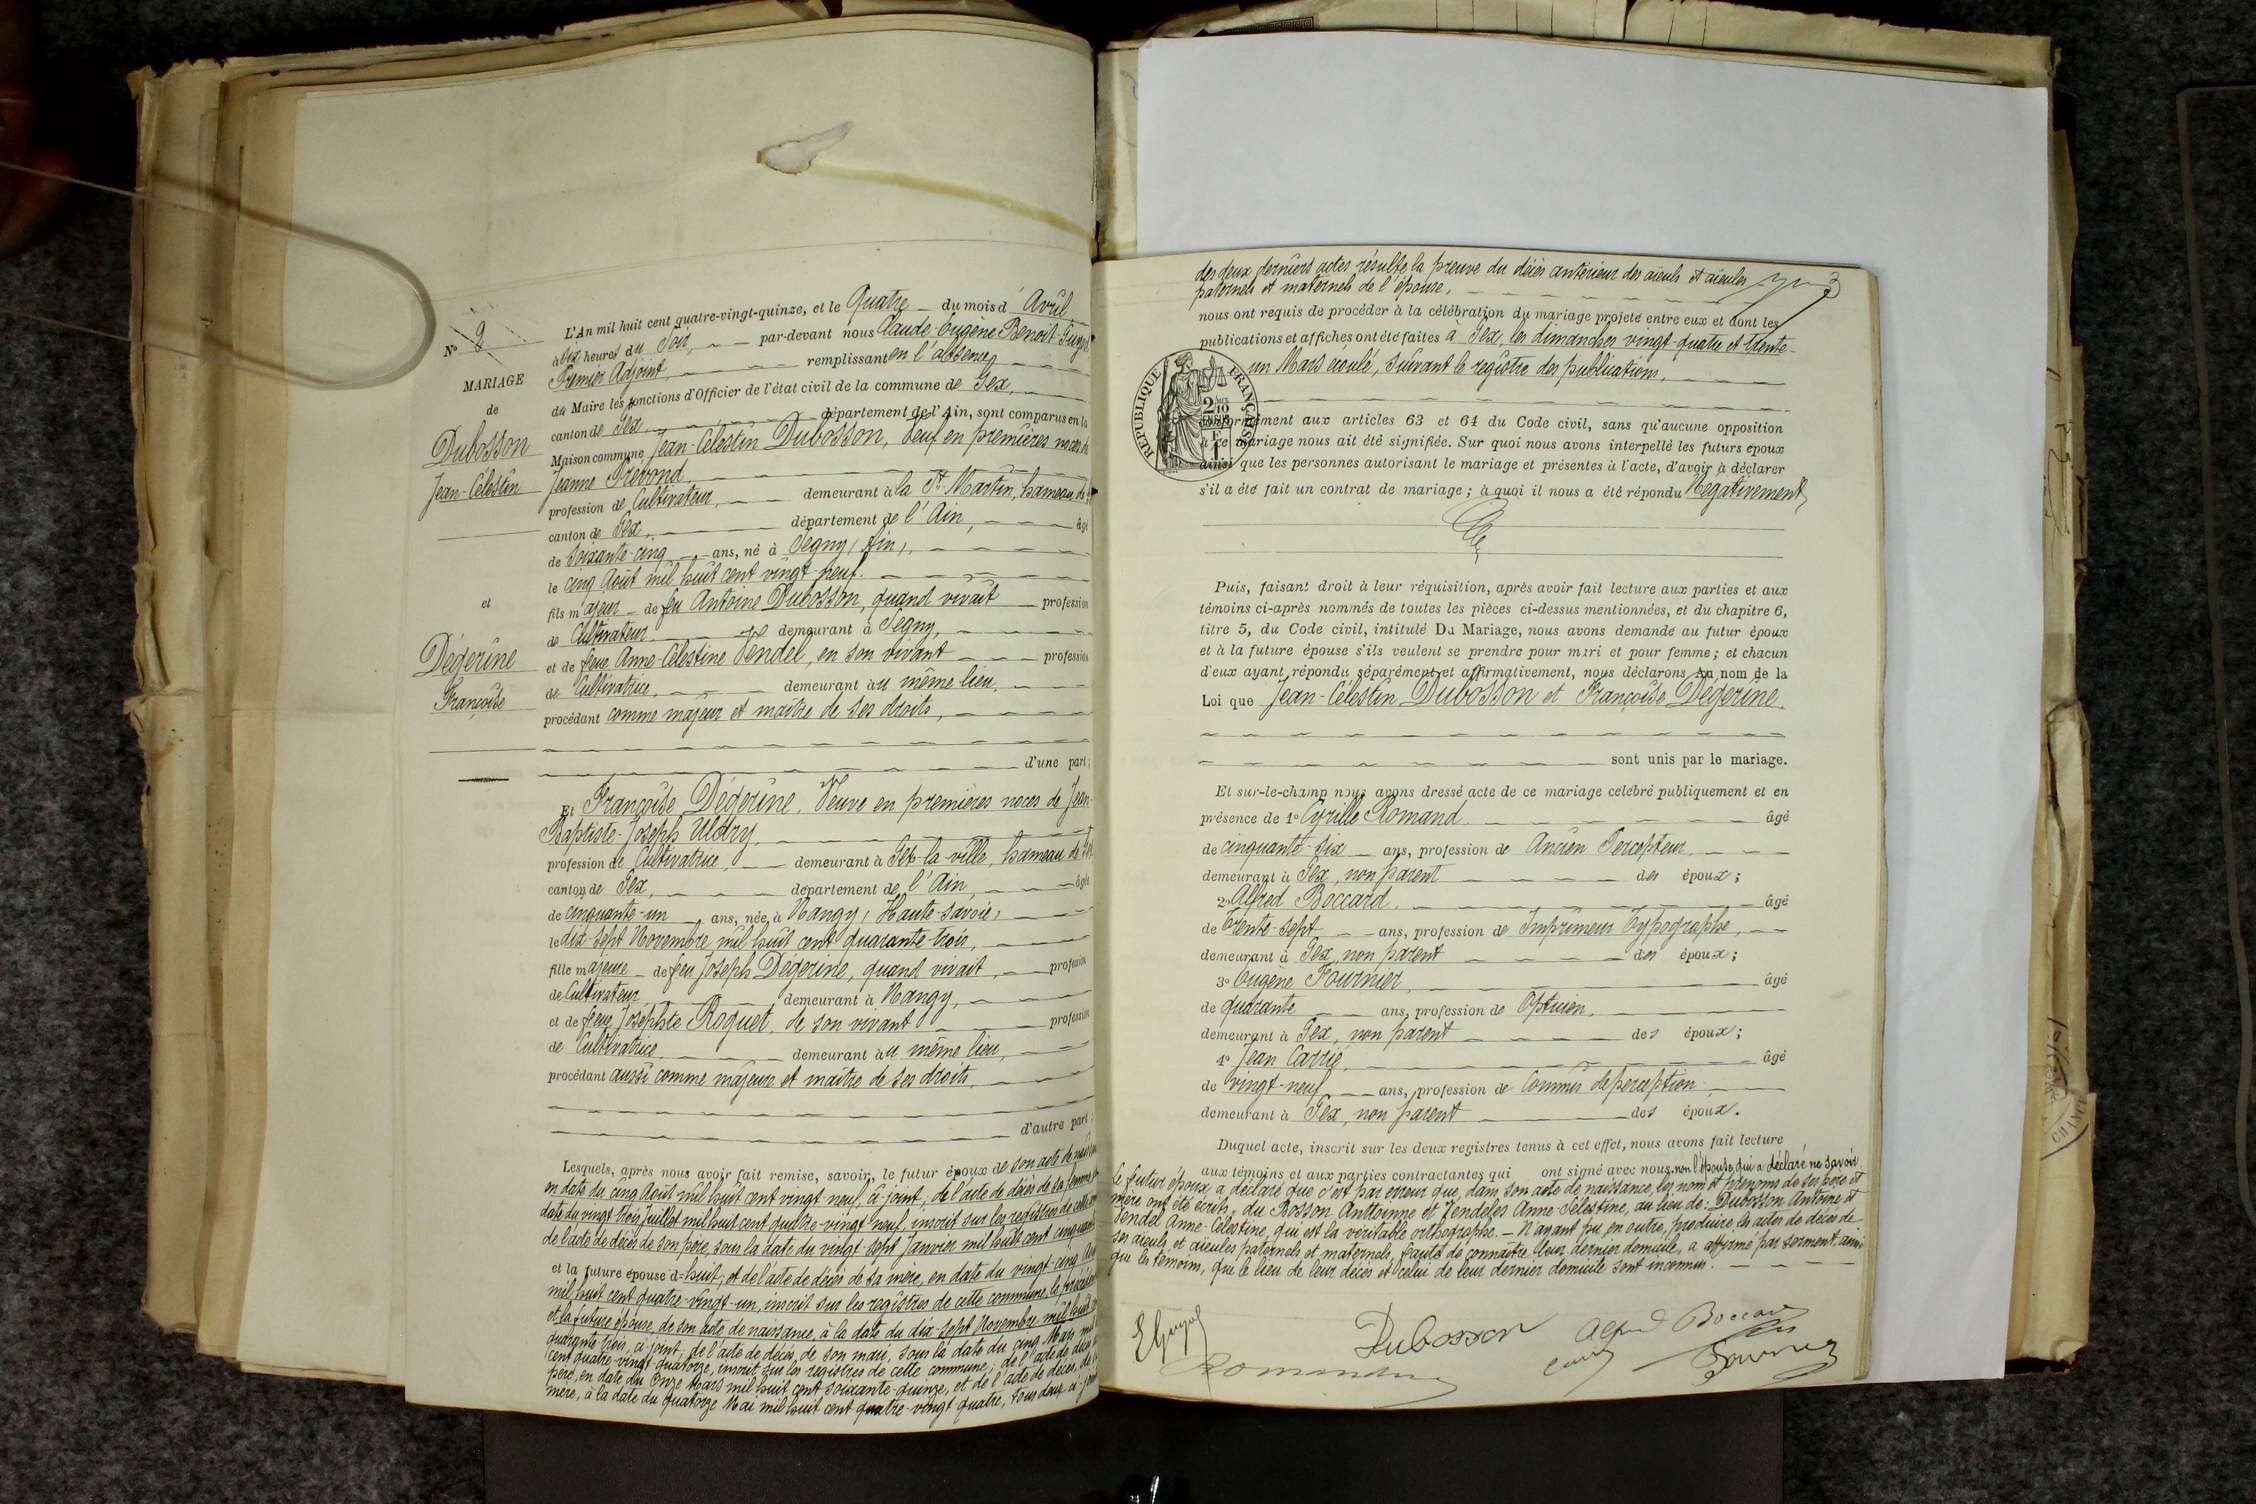 L'An mil huit cent quatre-vingt-quinze, et le Quatre du mois d' Avril
à six heures du Soir, par-devant nous Claude-Eugène Benoit-Guyot
Premier Adjoint, remplissant en l'absence
du Maire les fonctions d'Officier de l'état civil de la commune de Gex,
canton de Gex, département de l'Ain, sont comparus en la
Maison commune Jean-Célestin Dubosson, Veuf en premières noces de
Jeanne Prévond
profession de Cultivateur, demeurant à la St Martin, hameau de
canton de Gex, département de l'Ain, âgé
de soixante-cinq ans, né à Segny, Ain,
le cinq Août mil huit cent vingt-neuf.
fils majeur de feu Antoine Dubosson, quand vivait profession
de Cultivateur, demeurant à Segny,
et de feue Anne-Célestine Vendel, en son vivant profession
de Cultivatrice, demeurant au même lieu,
procédant comme majeur et maître de ses droits,
d'une part;
Et Françoise Dégerine, Veuve en premières noces de Jean-
Baptiste-Joseph Uldry,
profession de Cultivatrice, demeurant à Gex-la-ville, hameau de
canton de Gex, département de l'Ain, âgée
de cinquante-un ans, née à Nangy, Haute-Savoie,
le dix-sept Novembre mil huit cent quarante-trois,
fille majeure de feu Joseph Dégerine, quand vivait, profession
de Cultivateur demeurant à Nangy,
et de feue Josephte Roguet, de son vivant profession
de Cultivatrice, demeurant au même lieu,
procédant aussi comme majeure et maître de ses droits,
d'autre part;
Lesquels, après nous avoir fait remise, savoir, le futur époux de son acte de naissance
en date du cinq Août mil huit cent vingt neuf, ci-joint; de l'acte de décès de sa femme en
date du vingt trois Juillet mil huit cent quatre-vingt neuf, inscrit sur les registres de cette
de l'acte de décès de son père, sous la date du vingt-sept Janvier mil huit cent cinquante
et la future épouse d= huit, et de l'acte de décès de sa mère, en date du vingt-cinq
mil huit cent quatre-vingt-un, inscrit sur les registres de cette commune,
et la future épouse, de son acte de naissance, à la date du dix-sept Novembre mil huit
quarante trois, ci-joint, de l'acte de décès de son mari, sous la date du cinq Mars mil
cent quatre-vingt quatorze, inscrit sur les registres de cette commune, de l'acte de décès
père, en date du Onze Mars mil huit cent soixante-quinze, et de l'acte de décès, de
mère, à la date du quatorze Mai mil huit cent quatre-vingt quatre, tous deux ci-joints
N° 2
MARIAGE
de
Dubosson
Jean-Célestin
et
Dégerine
Françoise
des deux derniers actes résulte la preuve du décès antérieur des aïeuls et aïeules
paternels et maternels de l'épouse,
3
nous ont requis de procéder à la célébration du mariage projeté entre eux et dont les
publications et affiches ont été faites à Gex, les dimanches vingt-quatre et trente-
un Mars écoulé, suivant le registre des publications,
RÉPUBLIQUE FRANÇAISE
conformément aux articles 63 et 64 du Code civil, sans qu'aucune opposition
à ce mariage nous ait été signifiée. Sur quoi nous avons interpellé les futurs époux
ainsi que les personnes autorisant le mariage et présentes à l'acte, d'avoir à déclarer
s'il a été fait un contrat de mariage; à quoi il nous a été répondu Négativement
Puis, faisant droit à leur réquisition, après avoir fait lecture aux parties et aux
témoins ci-après nommés de toutes les pièces ci-dessus mentionnées, et du chapitre 6,
titre 5, du Code civil, intitulé Du Mariage, nous avons demandé au futur époux
et à la future épouse s'ils veulent se prendre pour mari et pour femme; et chacun
d'eux ayant répondu séparément et affirmativement, nous déclarons au nom de la
Loi que Jean-Célestin Dubosson et Françoise Dégerine.
sont unis par le mariage.
Et sur-le-champ nous avons dressé acte de ce mariage célébré publiquement et en
présence de 1° Cyrille Romand âgé
de cinquante-six ans, profession de Ancien Percepteur
demeurant à Gex, non parent des époux;
2° Alfred Boccard, âgé
de trente-sept ans, profession de Imprimeur Typographe,
demeurant à Gex, non parent des époux;
3° Eugène Fournier, âgé
de quarante ans, profession de Opticien,
demeurant à Gex, non parent des époux;
4° Jean Carrié, âgé
de vingt-neuf ans, profession de Commis de perception
demeurant à Gex, non parent des époux.
Duquel acte, inscrit sur les deux registres tenus à cet effet, nous avons fait lecture
aux témoins et aux parties contractantes qui ont signé avec nous non l'épouse qui a déclaré ne savoir
Le futur époux a déclaré que c'est par erreur que, dans son acte de naissance, les nom et prénoms de ses père et
mère ont été écrits, du Bosson Anttoinne et Vendeles Anne Sélestine, au lieu de: Dubosson Antoine et
Vendel Anne-Célestine, qui est la véritable orthographe. — N'ayant pu en outre, produire les actes de décès de
ses aïeuls et aïeules paternels et maternels, faute de connaître leur dernier domicile, a affirmé par serment, ainsi
que les témoins, que le lieu de leur décès et celui de leur dernier domicile sont inconnus.
E Guyot
Dubosson
Alfred Boccard
Romand
Carrié
Fournier